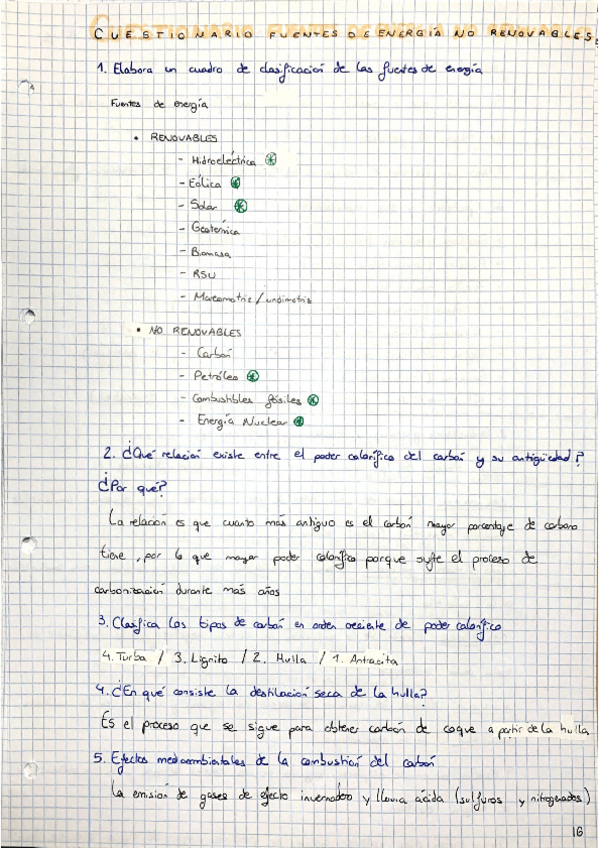 CUESTIONARIO FUENTES DE ENERGÍA NO RENOVABLES.
1. Elabora un cuadro de clasificación de las fuentes de energía
Fuentes de energía
• RENOVABLES
- Hidroeléctrica
- Eólica
- Solar
- Geotérmica
- Biomasa
- RSU
- Mareomotriz / undimotriz
• NO RENOVABLES
- Carbón
- Petróleo
- Combustibles fósiles
- Energía Nuclear
2. ¿Qué relación existe entre el poder calorífico del carbón y su antigüedad?
¿Por qué?
La relación es que cuanto más antiguo es el carbón mayor porcentaje de carbono
tiene, por lo que mayor poder calorífico porque sufre el proceso de
carbonización durante más años
3. Clasifica los tipos de carbón en orden creciente de poder calorífico
4. Turba / 3. Lignito / 2. Hulla / 1. Antracita
4. ¿En qué consiste la destilación seca de la hulla?
Es el proceso que se sigue para obtener carbón de coque a partir de la hulla
5. Efectos medioambientales de la combustión del carbón
La emisión de gases de efecto invernadero y lluvia ácida (sulfuros y nitrogenados)
16